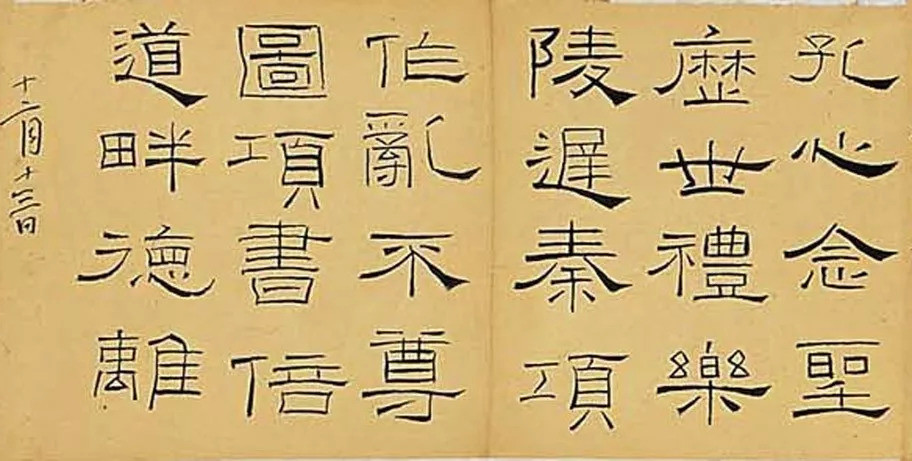 孔心念聖
歷世禮樂
陵遲秦項
作亂不尊
圖項書倍
道畔德離
十二月十三日